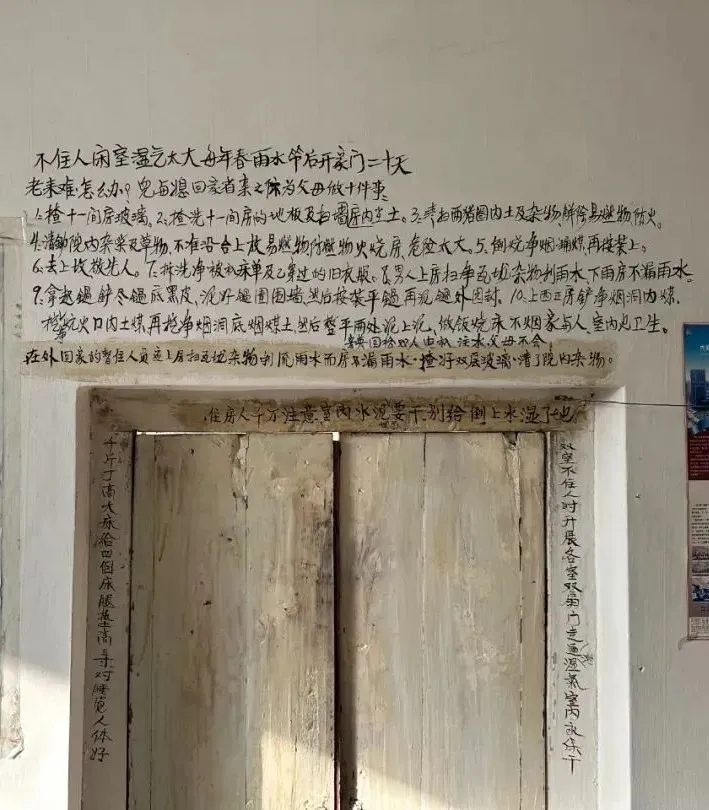 不住人闲室湿气太大每年春雨水节后开豪门二十天
老来难怎么办？儿与媳回家省亲之际为父母做十件事：
1.擦十一间房玻璃。2.擦洗十一间房的地板及扫墙房内尘土。3.清扫两猪圈内土及杂物，解除易燃物防火。
4.清除院内杂柴及草物，不准沿台上放易燃物防燃物火烧房，危险太大。5.倒烧净烟涌煤，再按装上。
6.去上坟敬先人。7.拆洗净被和床单及已穿过的旧衣服。8.男人上房扫净瓦垅杂物利雨水、下雨房不漏雨水。
9.拿起锅铲尽锅底黑皮，泥好锅圈围墙，然后按装平锅再泥锅外围封。10.上西正房铲净烟洞内煤，
挖炕火口内土煤，再挖净烟洞底烟煤土，然后整平两处泥上泥，做饭烧床不烟家与人，室内也卫生。
回给双人电机注水，父母不会
在外回家的暂住人员应上房扫瓦垅杂物利流雨水而房不漏雨水，擦好双层玻璃，清了院内杂物。
住房人千万注意室内水泥要干，别给倒上水湿了地
千斤丁高大床给四个床腿垫高寸对睡觉人体好
双室不住人时开展各室双扇门走通湿气室内永保干